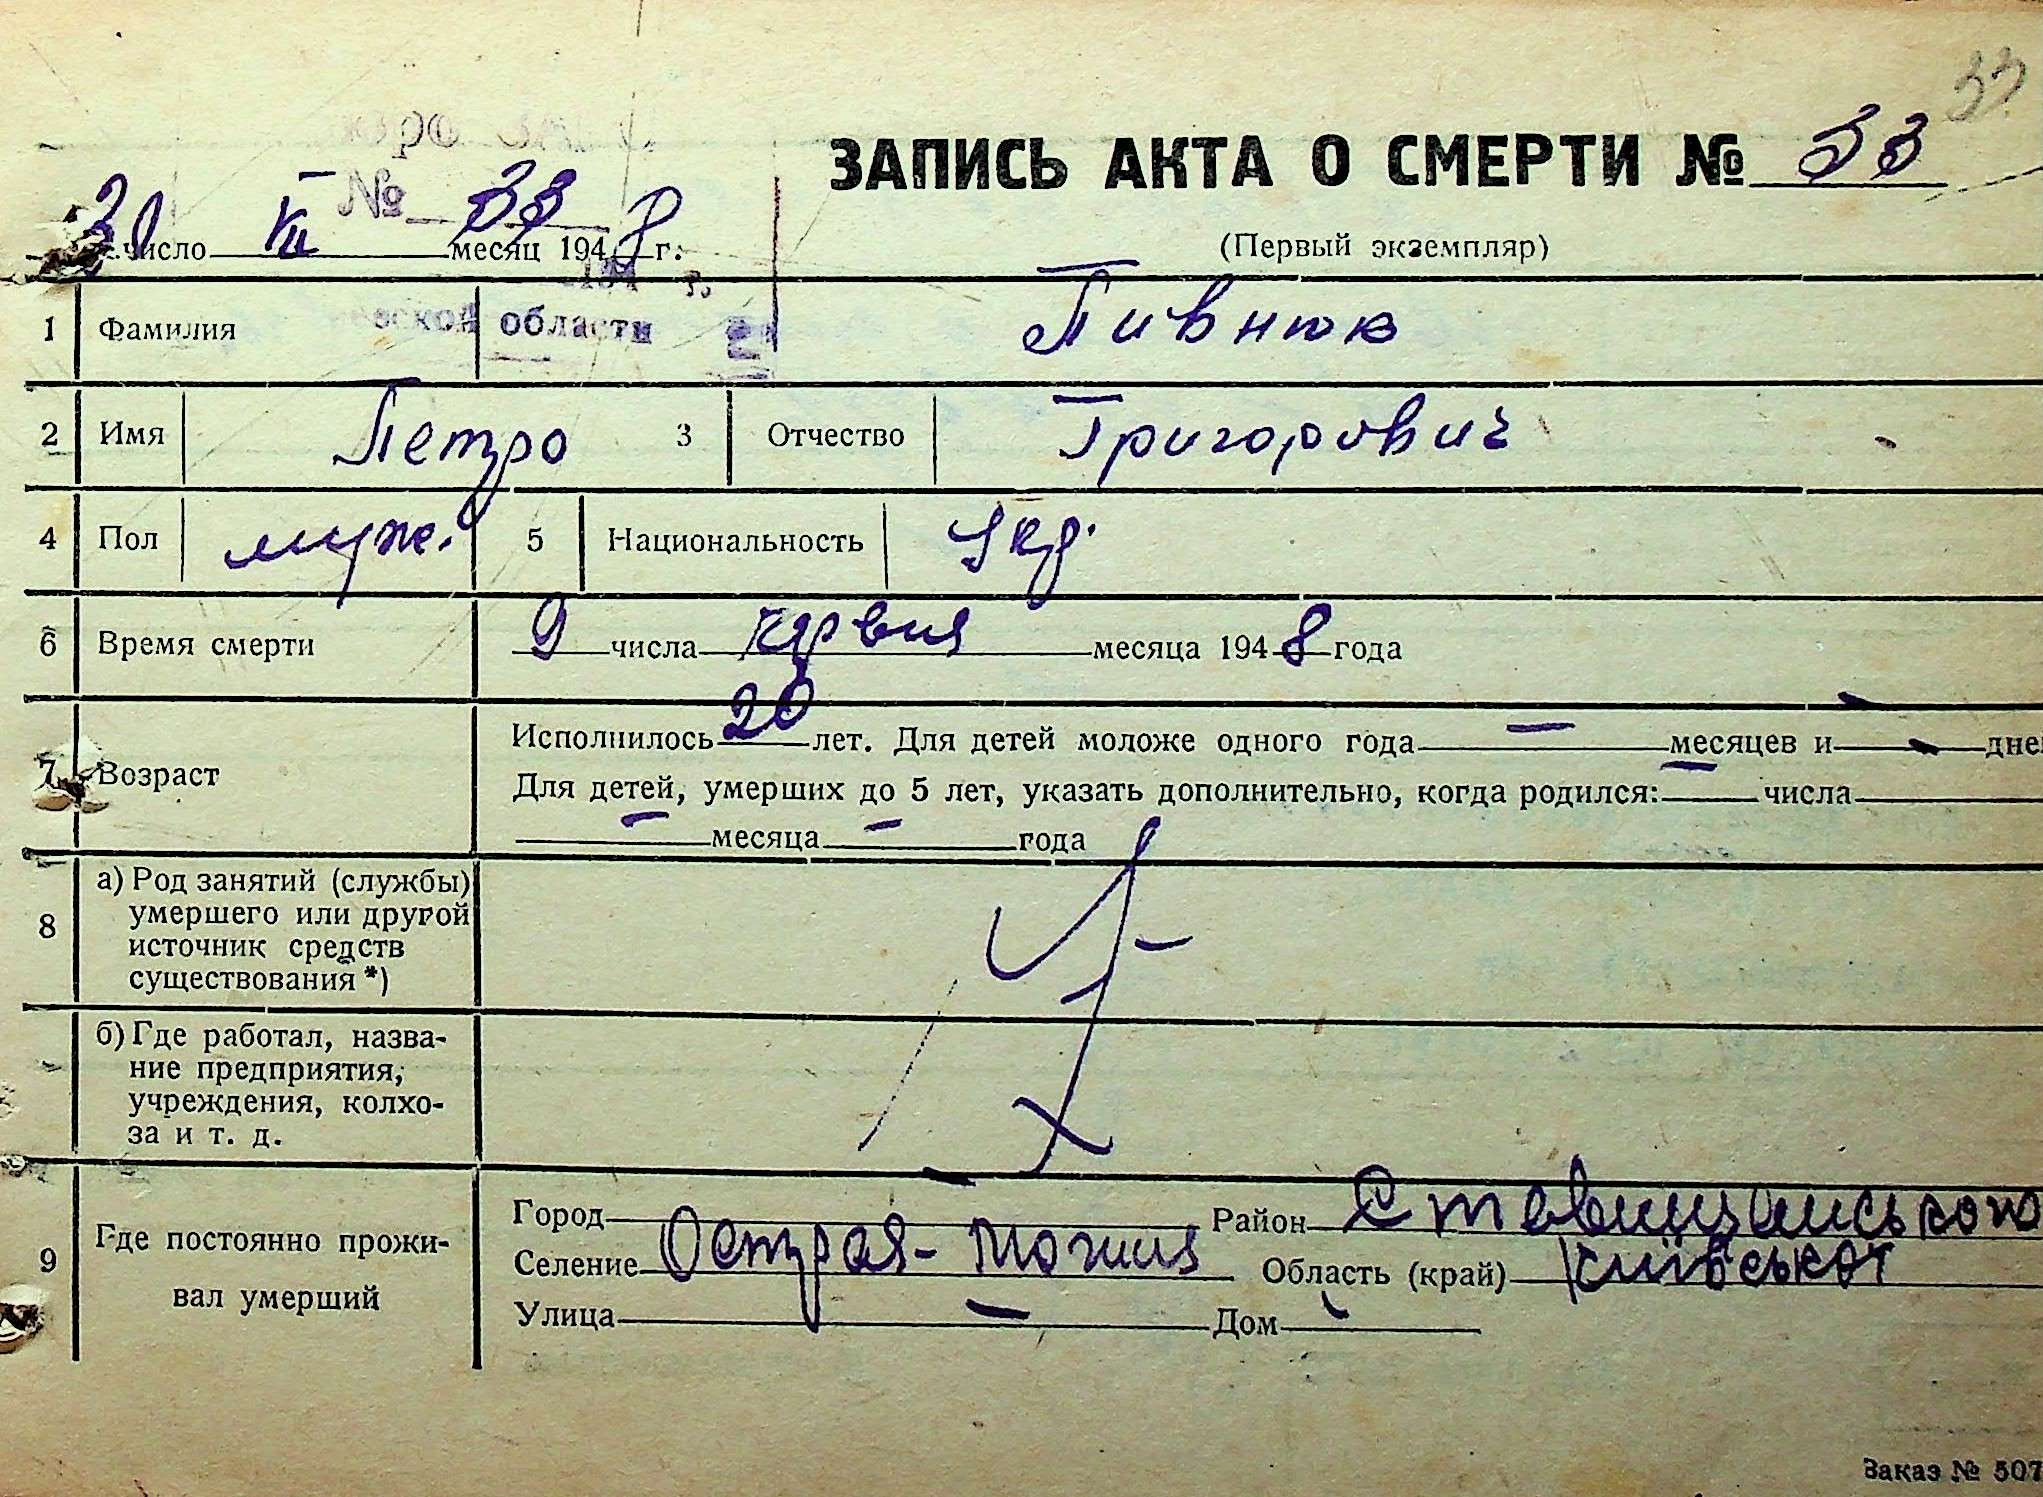 33
ЗАПИСЬ АКТА О СМЕРТИ № 33
№ 33
число VII месяц 1948 г.
(Первый экземпляр)
области
1 Фамилия Пивнюк
2 Имя Петро 3 Отчество Григорович
4 Пол муж. 5 Национальность Укр.
6 Время смерти 9 числа червня месяца 1948 года
7 Возраст
Исполнилось 20 лет. Для детей моложе одного года — месяцев и — дне
Для детей, умерших до 5 лет, указать дополнительно, когда родился: — числа
— месяца — года
8 а) Род занятий (службы)
умершего или другой
источник средств
существования *)
б) Где работал, назва-
ние предприятия,
учреждения, колхо-
за и т. д.
9 Где постоянно прожи-
вал умерший
Город — Район Ставищанського
Селение Острая-Могила Область (край) Київської
Улица — Дом —
Заказ № 507